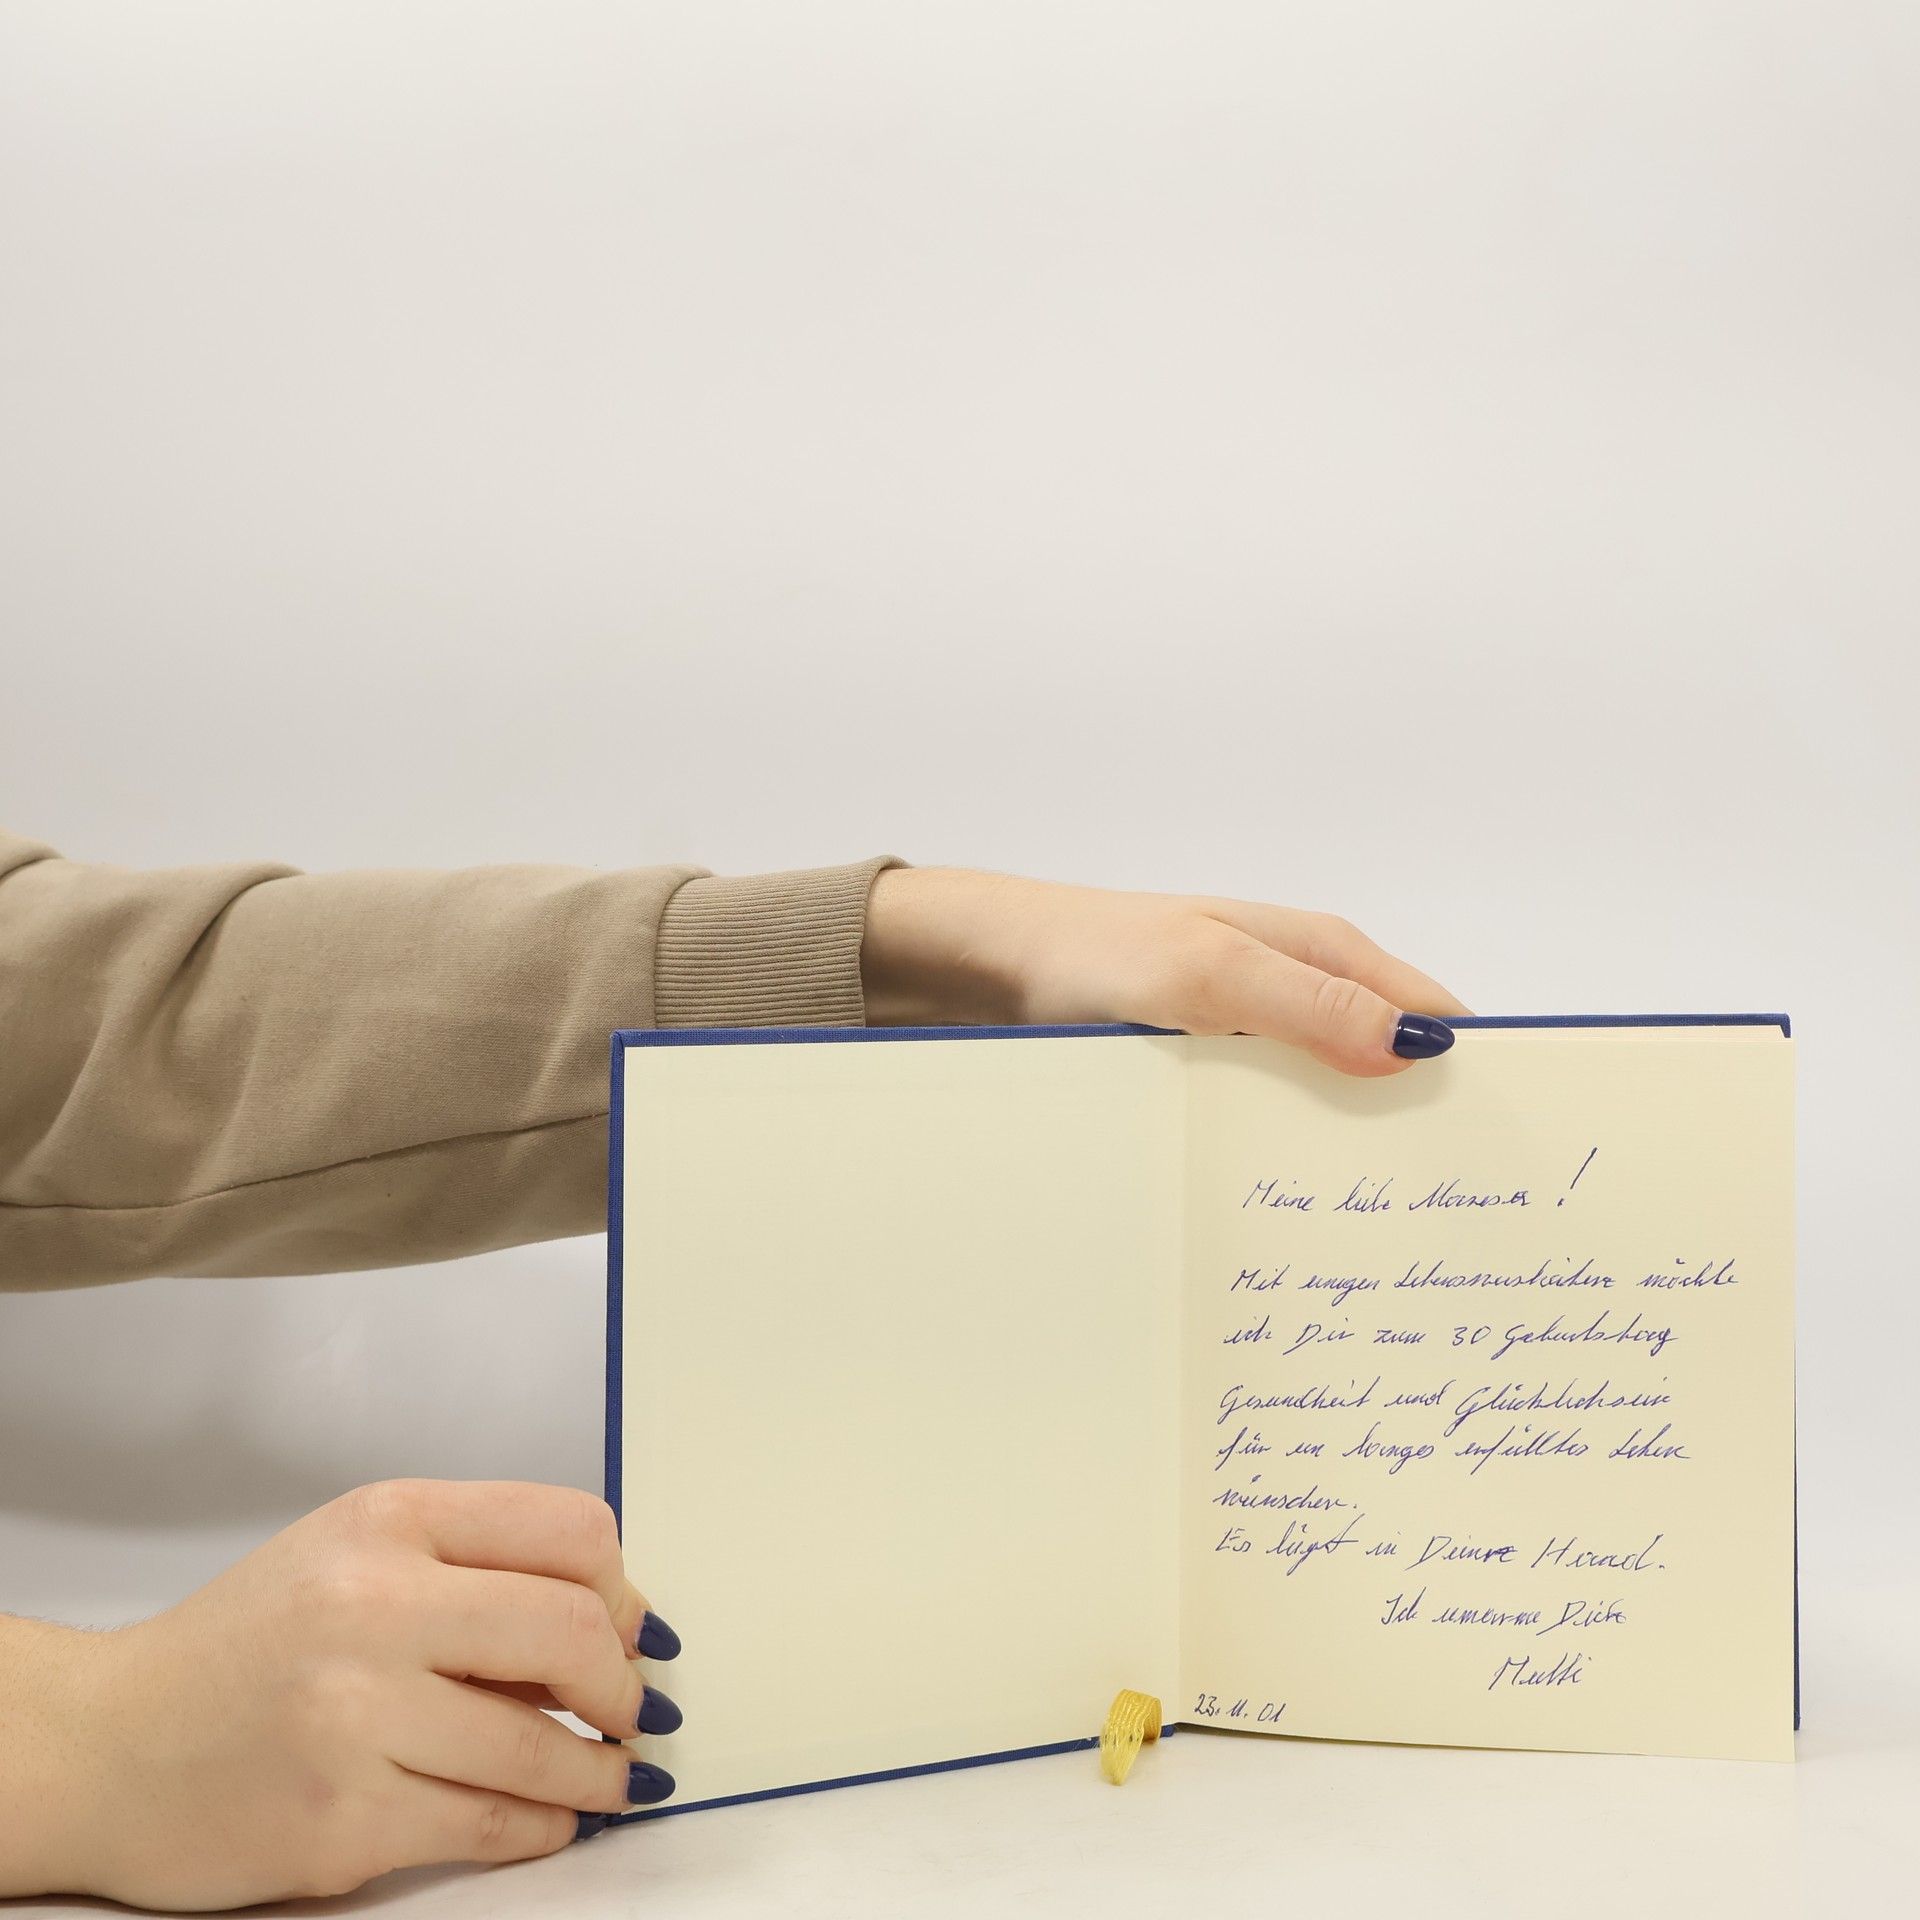 Meine liebe !
Mit einigen Lebensweisheiten möchte
ich Dir zum 30 Geburtstag
Gesundheit und Glücklichsein
für ein langes erfülltes Leben
wünschen.
Es liegt in Deiner Hand.
Ich umarme Dich
Mutti
23. 11. 01